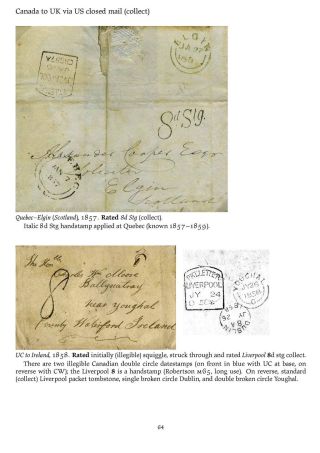 Canada to UK via US closed mail (collect)
ELGIN
JA 27
8d Stg.
Alexander Cooper Esqr
Elgin
Scotland
Quebec–Elgin (Scotland), 1857. Rated 8d Stg (collect).
Italic 8d Stg handstamp applied at Quebec (known 1857–1859).
8
Moore
Ballynatray
near Youghal
County Waterford Ireland
PKT. LETTER
LIVERPOOL
JY 24
YOUGHAL
JY 26
1858
UC to Ireland, 1858. Rated initially (illegible) squiggle, struck through and rated Liverpool 8d stg collect.
There are two illegible Canadian double circle datestamps (on front in blue with UC at base, on
reverse with CW); the Liverpool 8 is a handstamp (Robertson M65, long use). On reverse, standard
(collect) Liverpool packet tombstone, single broken circle Dublin, and double broken circle Youghal.
64